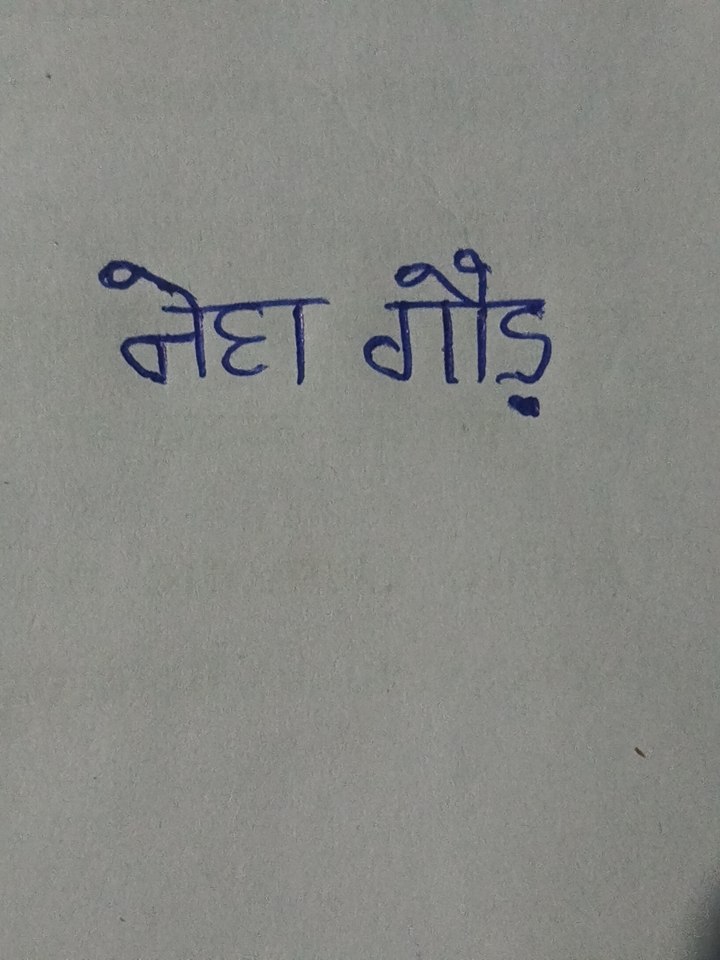 नेहा गौड़